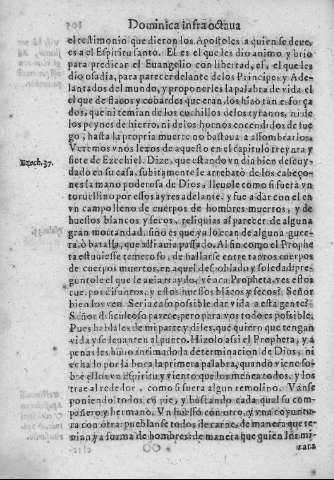 Dominica infra octaua
el testimonio que dieron los Apostoles a quien se deue,
es a el Espiritu santo. El es el que les dio animo y brio
para predicar el Euangelio con libertad, el, el que les
dio osadia, para parecer delante de los Principes y Ade-
lantados del mundo, y proponerles la palabra de vida. el
el que de flacos y cobardes que eran, los hizo tan esforça
dos, que ni temian de los cuchillos de los tyranos, ni de
los peynes de hierro, ni de los hornos encendidos de fue-
go, hasta la propria muerte no bastaua a assombrarlos.
Veremos vnos lexos de aquesto en el capitulo treynta y
Ezech. 37.
siete de Ezechiel. Dize, que estando vn dia bien descuy-
dado en su casa, subitamente le arrebatò de los cabeço-
nes la mano poderosa de Dios, lleuole como si fuera vn
toruellino por essos ayres adelante, y fue a dar con el en
vn campo lleno de cuerpos de hombres muertos, y de
huessos blancos y secos, reliquias al parecer de alguna
gran mortandad, sino es que ya fuessen de alguna guer-
ra, ò batalla, que alli auia passado. Al fin como el Propheta
estuuiesse temeroso, de hallarse entre tantos cuerpos
de cuerpos muertos, en aquel despoblado y soledad, pre-
guntole el que le auia traydo, ve aca Propheta, ves estos
cuerpos difuntos, y estos huessos blancos y secos? Señor
bien los veo. Seria caso possible dar vida a esta gente?
Señor dificultoso parece, pero para vos todo es possible.
Pues hablales de mi parte, y diles, que quiero que tengan
vida y se leuanten al punto. Hizolo assi el Propheta, y a
penas les huuo intimado la determinacion de Dios, ni
echado por la boca la primera palabra, quando viene so-
bre ellos vn espiritu y viento que los menea todos, y los
trae al rededor, como si fuera algun remolino. Vanse
poniendo todos en pie, y buscando cada qual su com-
pañero y hermano. Vn huesso con otro, y vna coyuntu
ra con otra: pueblanse todos de carne, de manera que te-
nian ya forma de hombres: de manera que quien los mi-
rara